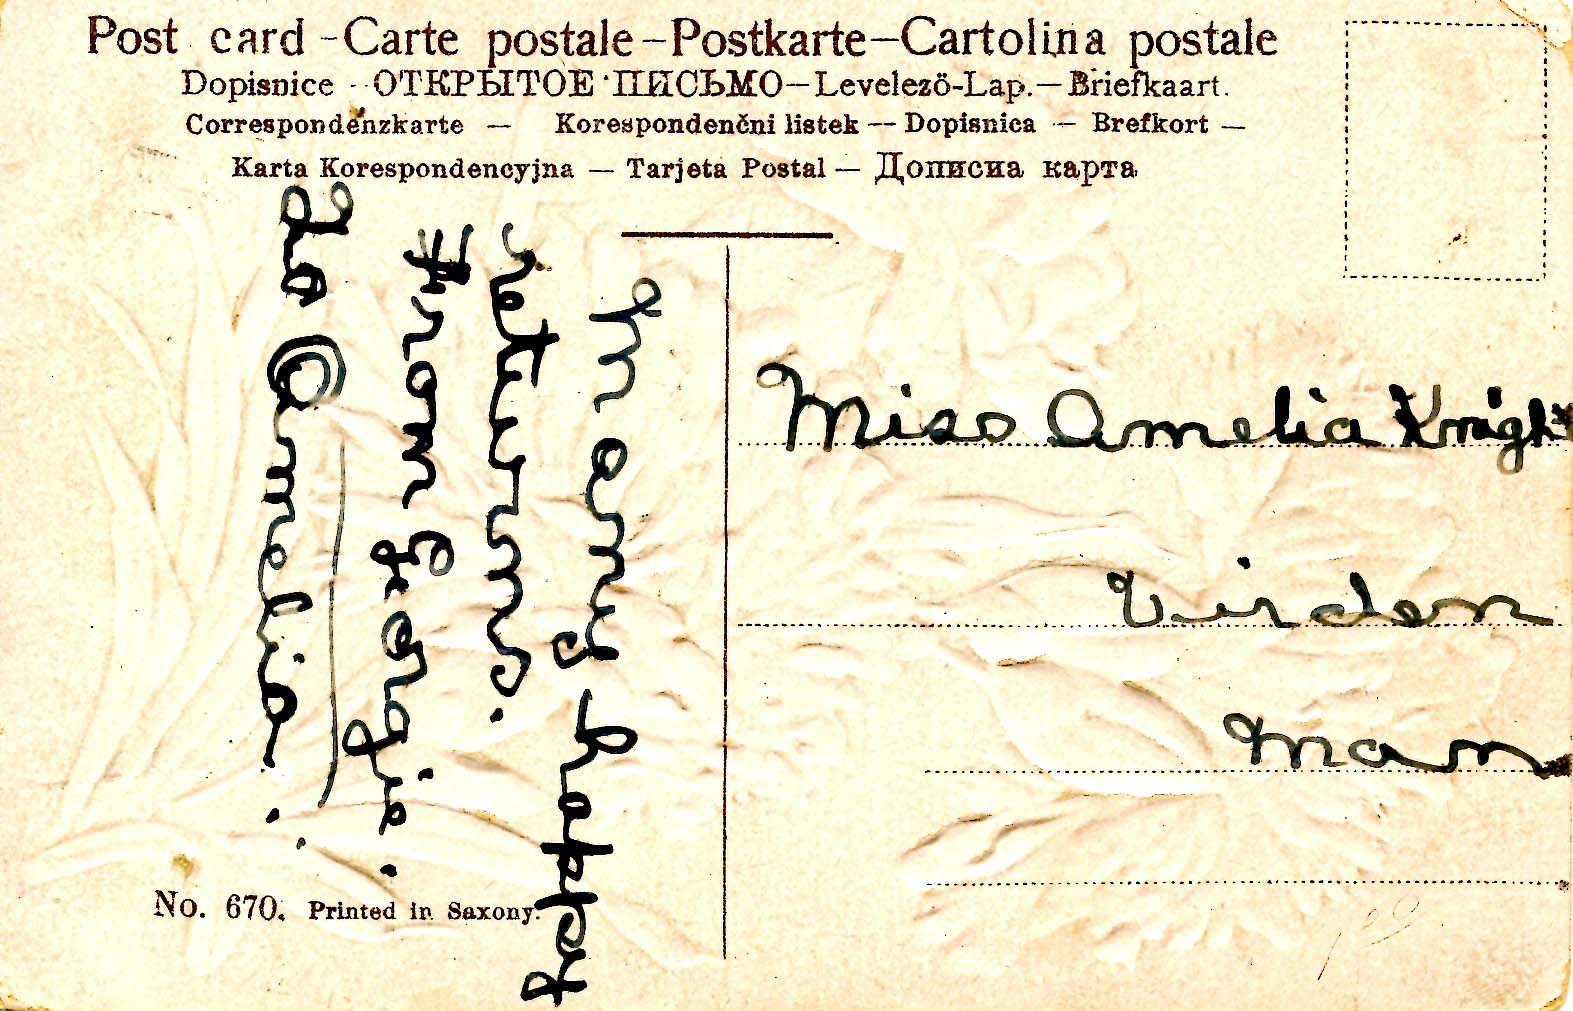 Post card - Carte postale - Postkarte - Cartolina postale
Dopisnice - ОТКРЫТОЕ ПИСЬМО - Levelező-Lap. - Briefkaart.
Correspondenzkarte - Korespondenčni listek - Dopisnica - Brefkort -
Karta Korespondencyjna - Tarjeta Postal - Дописна карта
Many happy
returns.
From Georgia.
To Amelia.
Miss Amelia Knight
Virden
Man
No. 670. Printed in Saxony.